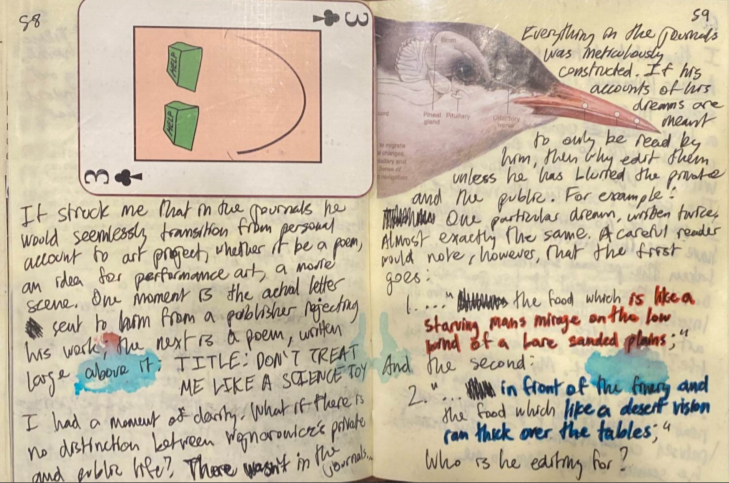 58
3
HELP
HELP
3
It struck me that in the journals he
would seemlessly transition from personal
account to art project, whether it be a poem,
an idea for performance art, a movie
scene. One moment is the actual letter
sent to him from a publisher rejecting
his work, the next is a poem, written
large above it: TITLE: DON'T TREAT
ME LIKE A SCIENCE TOY
I had a moment of clarity. What if there is
no distinction between Wojnarowicz's private
and public life? There wasn't in the
journals...
59
Everything in the journals
was meticulously
constructed. If his
accounts of his
dreams are
meant
to only be read by
him, then why edit them
unless he has blurred the private
and the public. For example:
One particular dream, written twice,
Almost exactly the same. A careful reader
would note, however, that the first
goes:
1. ..." the food which is like a
starving mans mirage on the low
wind of a bare sanded plains;"
And the second:
2. "... in front of the finery and
the food which like a desert vision
ran thick over the tables;"
Who is he editing for?
Pineal
gland
Pituitary
Olfactory
nerve